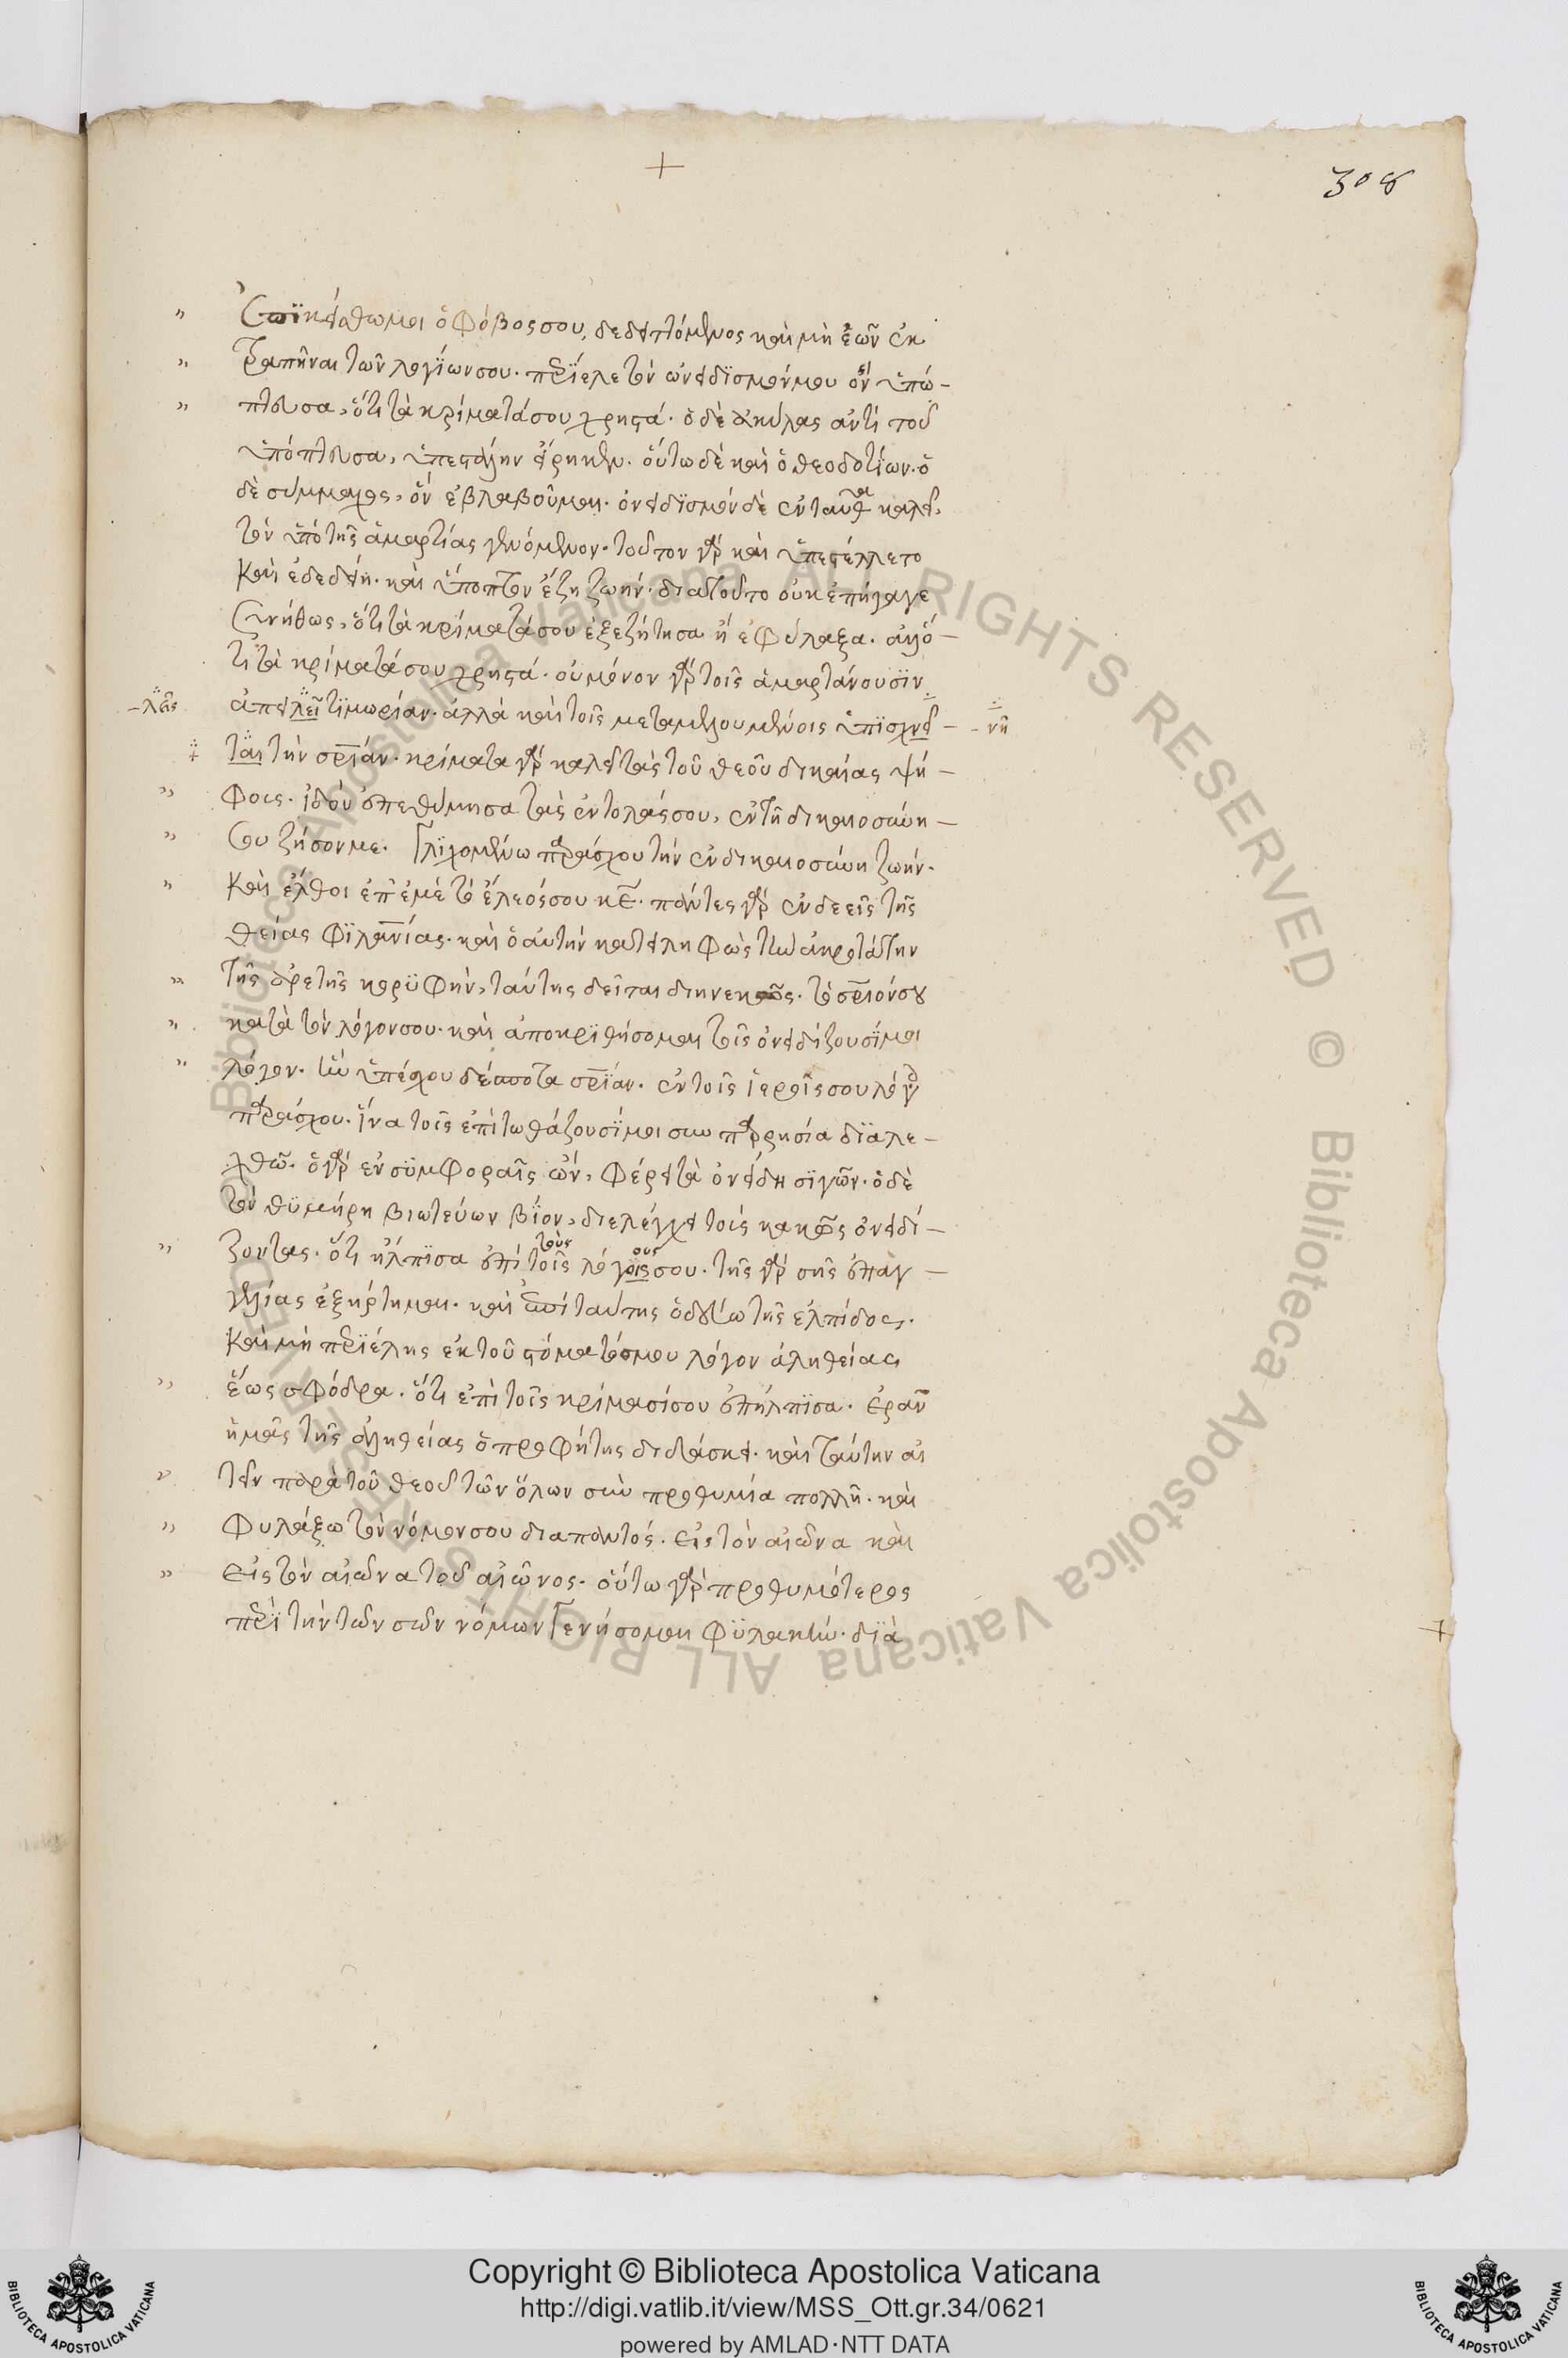 308
ἐπικείσθω μοι ὁ φόβος σου, δεδιττόμενος καὶ μὴ ἐῶν ἐκ
τραπῆναι τῶν λογίων σου. περίελε τὸν ὀνειδισμόν μου ὃν ὑπώ-
πτευσα, ὅτι τὰ κρίματά σου χρηστά. ὁ δὲ ἀκύλας ἀντὶ τοῦ
ὑπόπτευσα, ὑπεστάλην εἴρηκεν. οὕτω δὲ καὶ ὁ θεοδοτίων. ὁ
δὲ σύμμαχος, ὃν εὐλαβοῦμαι. ὀνειδισμὸν δὲ ἐνταῦθα καλεῖ,
τὸν ὑπὸ τῆς ἁμαρτίας γενόμενον. τοῦτον γὰρ καὶ ὑπεστέλλετο
καὶ ἐδεδίει. καὶ ὕποπτον ἔζη ζωήν. διατοῦτο οὐκ ἐπήγαγε
συνήθως, ὅτι τὰ κρίματά σου ἐξεζήτησα ἢ ἐφύλαξα. ἀλλ' ὅ-
τι τὰ κρίματά σου χρηστά. οὐ μόνον γὰρ τοῖς ἁμαρτάνουσιν
-λεῖς ἀπειλεῖ τιμωρίαν. ἀλλὰ καὶ τοῖς μεταμελουμένοις ὑπισχνεῖ- -νῆ
ται τὴν σρίαν. κρίματα γὰρ καλεῖ τὰς τοῦ θεοῦ δικαίας ψή-
φους. ἰδοὺ ἐπεθύμησα τὰς ἐντολάς σου, ἐν τῇ δικαιοσύνῃ
σου ζῆσόν με. γλιχομένῳ παράσχου τὴν ἐν δικαιοσύνῃ ζωήν.
καὶ ἔλθοι ἐπ' ἐμὲ τὸ ἔλεός σου κε. πάντες γὰρ ἐνδεεῖς τῆς
θείας φιλανίας. καὶ ὁ αὐτὴν κατειληφὼς τὴν ἀκροτάτην
τῆς ἀρετῆς κορυφήν, ταύτης δεῖται διηνεκῶς. τὸ σριόν σου
κατὰ τὸν λόγον σου. καὶ ἀποκριθήσομαι τοῖς ὀνειδίζουσί μοι
λόγον. ἣν ὑπέσχου δέσποτα σρίαν. ἐν τοῖς ἱεροῖς σου λόγοις
παράσχου. ἵνα τοῖς ἐπιτωθάζουσί μοι σὺν παρρησία διαλε-
χθῶ. ὁ γὰρ ἐν συμφοραῖς ὤν, φέρει τὰ ὀνείδη σιγῶν. ὁ δὲ
τὸν θυμήρη βιωτεύων βίον, διελέγχει τοὺς κακῶς ὀνειδί-
ζοντας. ὅτι ἤλπισα ἐπὶ τοῖς τοὺς λόγοις ους σου. τῆς γὰρ σῆς ἐπαγ-
γελίας ἐξήρτημαι. καὶ ἐπὶ ταύτης ὁδεύω τῆς ἐλπίδος.
καὶ μὴ περιέλης ἐκ τοῦ στόματός μου λόγον ἀληθείας
ἕως σφόδρα. ὅτι ἐπὶ τοῖς κρίμασί σου ἐπήλπισα. ἐρᾶν
ἡμᾶς τῆς ἀληθείας ὁ προφήτης διδάσκει. καὶ ταύτην αἰ
τεῖν παρὰ τοῦ θεοῦ τῶν ὅλων σὺν προθυμία πολλῆ. καὶ
φυλάξω τὸν νόμον σου διαπαντός. εἰς τὸν αἰῶνα καὶ
εἰς τὸν αἰῶνα τοῦ αἰῶνος. οὕτω γὰρ προθυμότερος
περὶ τὴν τῶν σῶν νόμων γενήσομαι φυλακήν. διὰ
© Biblioteca Apostolica Vaticana ALL RIGHTS RESERVED
Copyright © Biblioteca Apostolica Vaticana
http://digi.vatlib.it/view/MSS_Ott.gr.34/0621
powered by AMLAD·NTT DATA
BIBLIOTECA APOSTOLICA VATICANA
BIBLIOTECA APOSTOLICA VATICANA